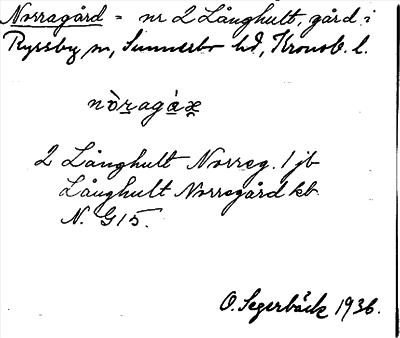 Norragård = nr 2 Långhult, gård i
Ryssby sn, Sunnerbo hd, Kronob. l.
nòr̲agá̲x̯
2 Långhult Norreg. 1 jb
Långhult Norregård kb
N. G 15.
O. Segerbäck 1936.